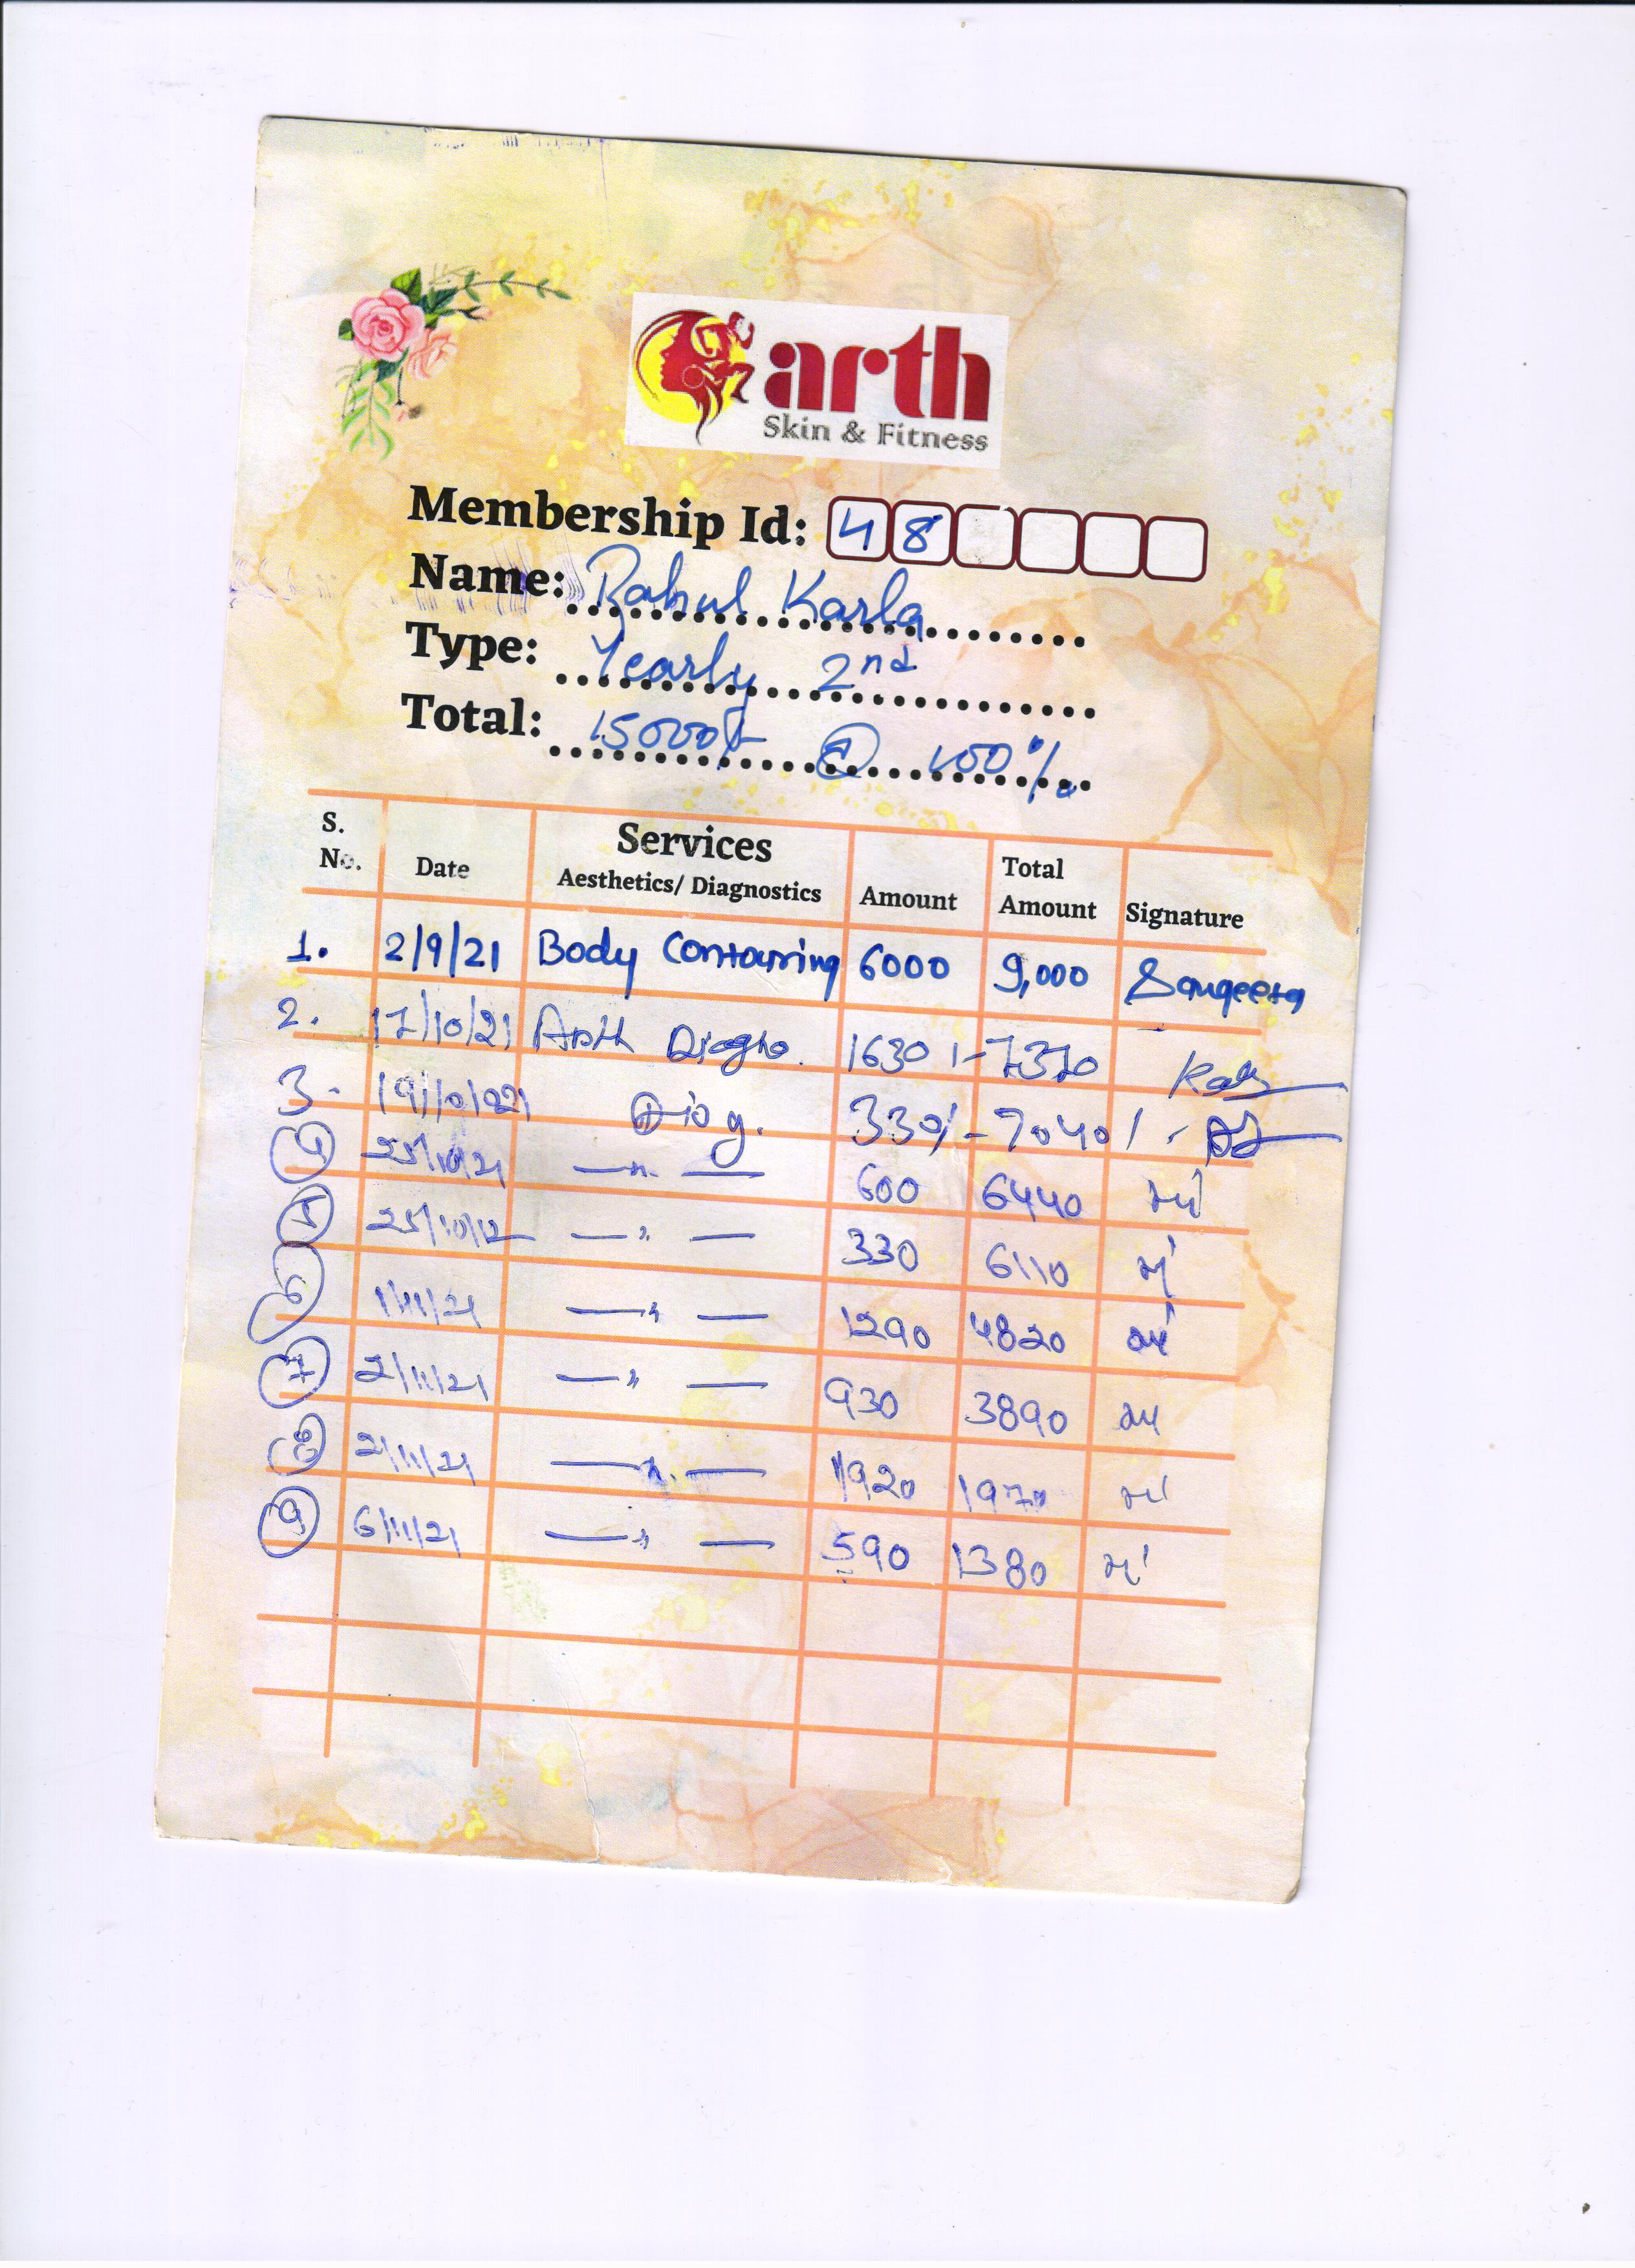 arth
Skin & Fitness
Membership Id: 48
Name: Rahul Karla
Type: Yearly 2nd
Total: 15000/- @ 100%
S. No. Date Services Aesthetics/ Diagnostics Amount Total Amount Signature
1. 2/9/21 Body Contouring 6000 9,000 Sangeeta
2. 17/10/21 Arth Diagno. 1630/- 7370
3. 19/10/21 Diag. 330/- 7040/-
4 25/10/21 —"— 600 6440
5 25/10/12 —"— 330 6110
6 1/11/21 —"— 1290 4820
7 2/11/21 —"— 930 3890
8 2/11/21 —"— 1920 1970
9 6/11/21 —"— 590 1380